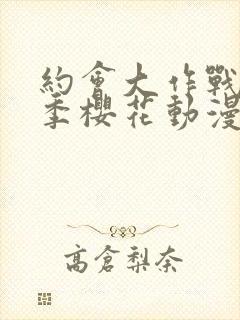 約會大作戰
季櫻花動漫
高倉梨奈